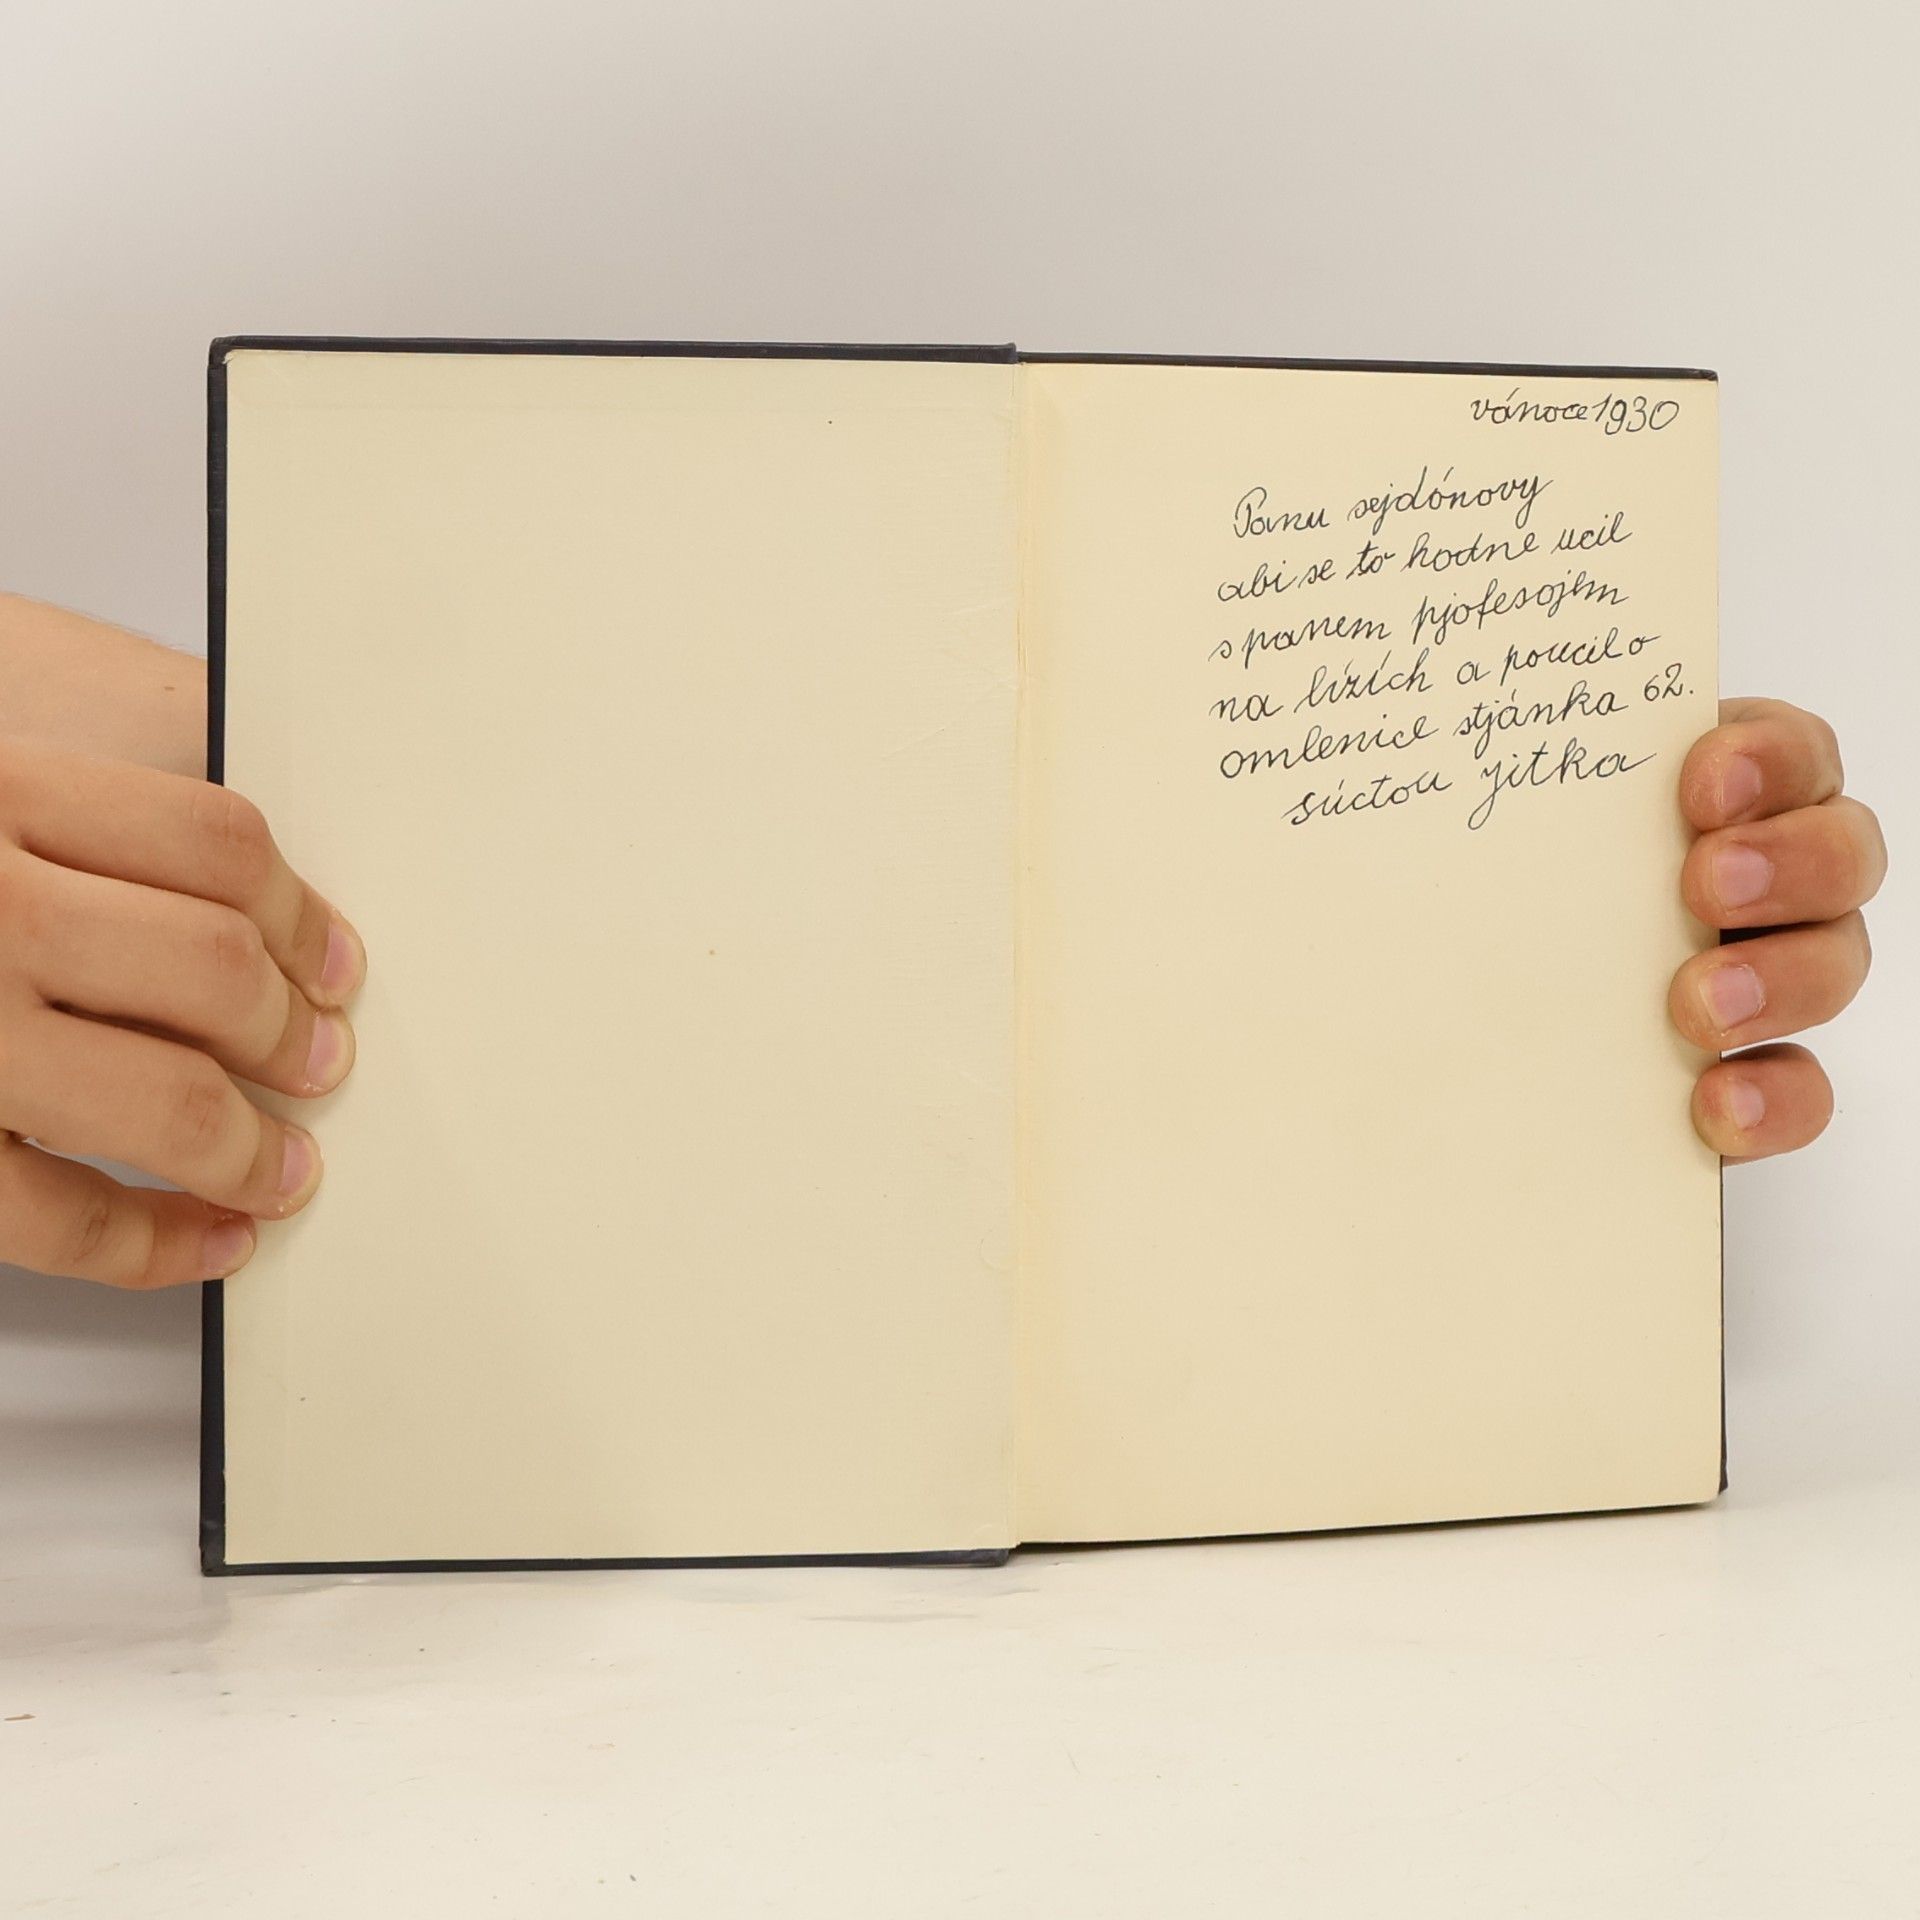 vánoce 1930
Panu sejdónovy
abi se to hodne ucil
s panem pjofesojem
na lízích a poucil o
omlenice stjánka 62.
súctou jitka